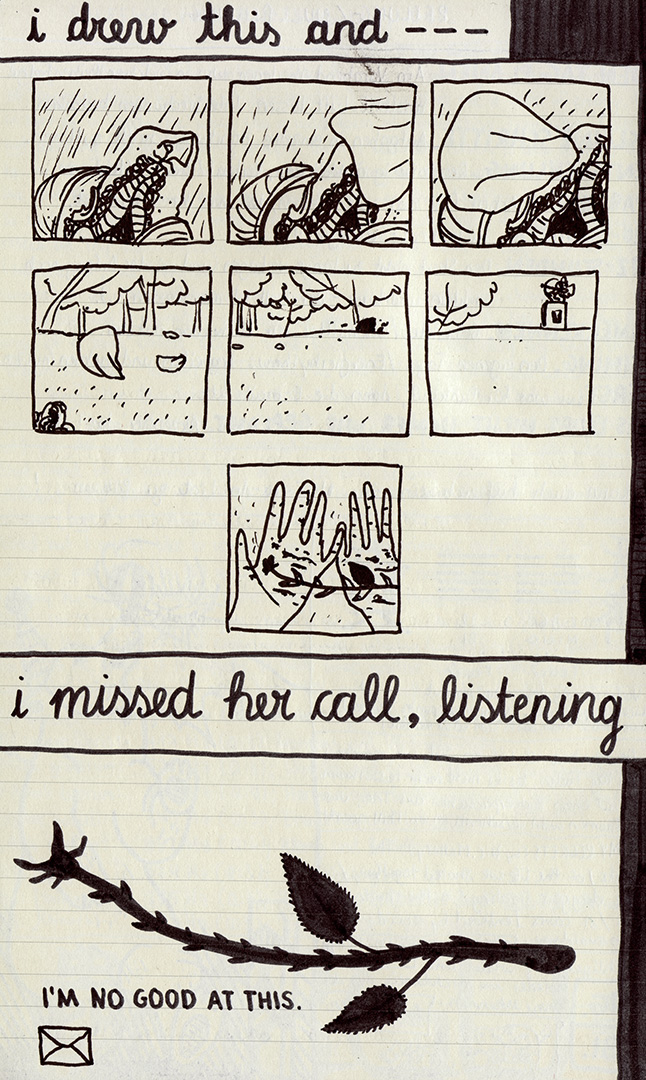 i drew this and ---
i missed her call, listening
I'M NO GOOD AT THIS.